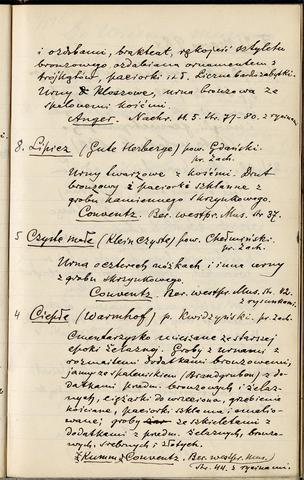 i ozdobami, brakteat, rękojeść sztyletu
bronzowego ozdabiana ornamentem z
trójkątów, paciorki i t. d. Liczne bardzo zabytki.
Urny kloszowe, urna bronzowa ze
spalonemi kośćmi.
Anger. Nachr. H. 5. Str. 77-80. z rycinami
8. Lipiez (Gute Herberge) pow. Gdański.
pr. Zach.
Urny twarzowe z kośćmi. Drut
bronzowy i paciorki szklanne z
grobu kamiennego skrzynkowego.
Conventz. Ber. westpr. Mus. Str. 37.
5 Czyste małe (Klein Czyste) pow. Chełmiński.
pr. Zach.
Urna o czterech nóżkach i inne urny
z grobu skrzynkowego.
Conventz. Ber. westpr. Mus. Str. 42.
z rysunkami.
4 Ciepłe (Warmhof) p. Kwidzyński. pr. Zach.
Cmentarzysko mieszane ze starszej
epoki żelaznej. Groby z urnami, z
rozmaitemi dodatkami bronzowemi,
jamy ze spaleniskiem (Brandgruben) z do-
datkami przedm. bronzowych i żelaz-
nych, ciężarki do wrzeciona, grzebienie
kościane, paciorki szklanne i emaljo-
wane; groby ze szkieletami z
dodatkami z przedm. żelaznych, bronzo-
wych, srebrnych i złotych.
Kumm Conventz. Ber. westpr. Mus.
Str. 44. z rycinami.